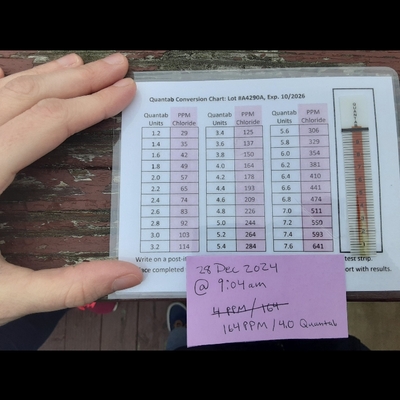 Quantab Conversion Chart: Lot 8A4290A, Exp. 10/2026
Quantab Units PPM Chloride Quantab Units PPM Chloride Quantab Units PPM Chloride
1.2 29 3.4 125 5.6 306
1.4 35 3.6 137 5.8 329
1.6 42 3.8 150 6.0 354
1.8 49 4.0 164 6.2 381
2.0 57 4.2 178 6.4 410
2.2 65 4.4 193 6.6 441
2.4 74 4.6 209 6.8 474
2.6 83 4.8 226 7.0 511
2.8 92 5.0 244 7.2 550
3.0 103 5.2 264 7.4 593
3.2 114 5.4 284 7.6 641
Write on a post-it test strip.
ace completed ort with results.
28 Dec 2024
@ 9:04am
4 PPM / 164
164 PPM / 4.0 Quantab